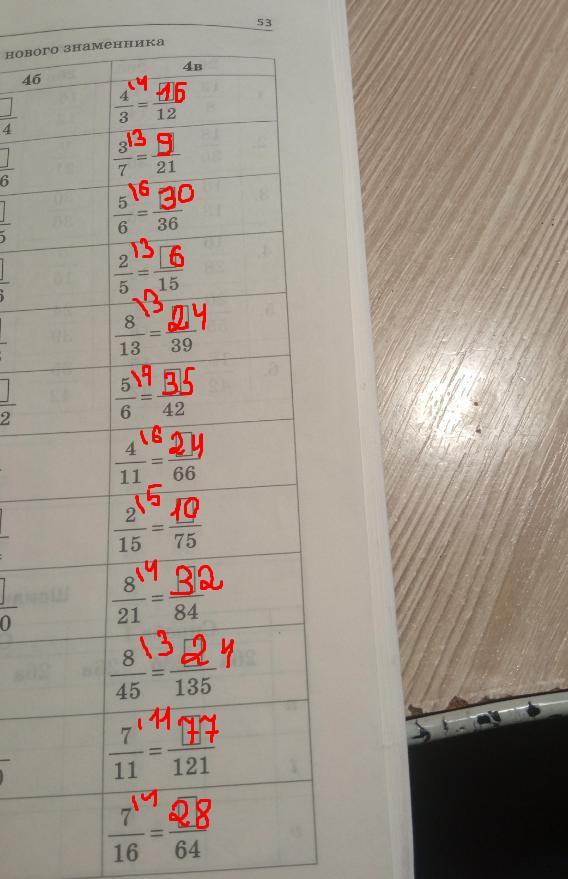 53
нового знаменника
4б 4в
4/3 \4 = 16/12
3/7 \3 = 9/21
5/6 \6 = 30/36
2/5 \3 = 6/15
8/13 \3 = 24/39
5/6 \7 = 35/42
4/11 \6 = 24/66
2/15 \5 = 10/75
8/21 \4 = 32/84
8/45 \3 = 24/135
7/11 \11 = 77/121
7/16 \4 = 28/64